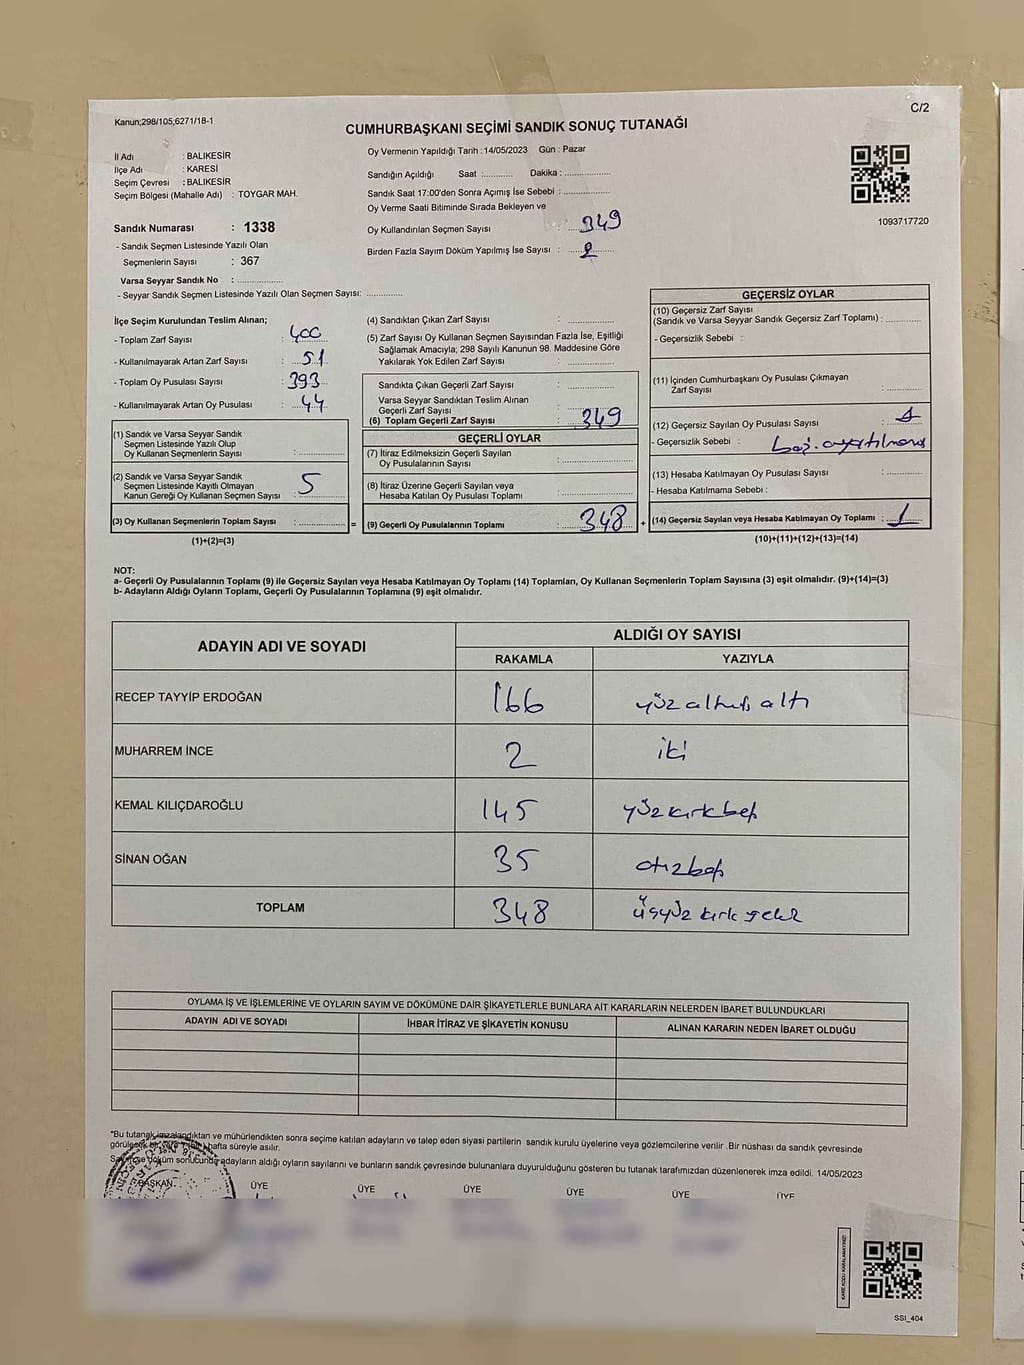 C/2
Kanun;298/105,6271/18-1
CUMHURBAŞKANI SEÇİMİ SANDIK SONUÇ TUTANAĞI
İl Adı : BALIKESİR
İlçe Adı : KARESİ
Seçim Çevresi : BALIKESİR
Seçim Bölgesi (Mahalle Adı) : TOYGAR MAH.
Sandık Numarası : 1338
- Sandık Seçmen Listesinde Yazılı Olan
Seçmenlerin Sayısı : 367
Varsa Seyyar Sandık No : ................
- Seyyar Sandık Seçmen Listesinde Yazılı Olan Seçmen Sayısı: ..............
Oy Vermenin Yapıldığı Tarih : 14/05/2023 Gün : Pazar
Sandığın Açıldığı Saat :........... Dakika : ................
Sandık Saat 17:00'den Sonra Açımış İse Sebebi : ................
Oy Verme Saati Bitiminde Sırada Bekleyen ve
Oy Kullandırılan Seçmen Sayısı : 349
Birden Fazla Sayım Döküm Yapılmış İse Sayısı : 2
1093717720
İlçe Seçim Kurulundan Teslim Alınan;
- Toplam Zarf Sayısı : 400
- Kullanılmayarak Artan Zarf Sayısı : 51
- Toplam Oy Pusulası Sayısı : 393
- Kullanılmayarak Artan Oy Pusulası : 44
(1) Sandık ve Varsa Seyyar Sandık
Seçmen Listesinde Yazılı Olup
Oy Kullanan Seçmenlerin Sayısı : ................
(2) Sandık ve Varsa Seyyar Sandık
Seçmen Listesinde Kayıtlı Olmayan
Kanun Gereği Oy Kullanan Seçmen Sayısı : 5
(3) Oy Kullanan Seçmenlerin Toplam Sayısı : ................ =
(1)+(2)=(3)
(4) Sandıktan Çıkan Zarf Sayısı : ................
(5) Zarf Sayısı Oy Kullanan Seçmen Sayısından Fazla İse, Eşitliği
Sağlamak Amacıyla; 298 Sayılı Kanunun 98. Maddesine Göre
Yakılarak Yok Edilen Zarf Sayısı : ................
Sandıkta Çıkan Geçerli Zarf Sayısı : ................
Varsa Seyyar Sandıktan Teslim Alınan
Geçerli Zarf Sayısı : ................
(6) Toplam Geçerli Zarf Sayısı : 349
GEÇERLİ OYLAR
(7) İtiraz Edilmeksizin Geçerli Sayılan
Oy Pusulalarının Sayısı : ................
(8) İtiraz Üzerine Geçerli Sayılan veya
Hesaba Katılan Oy Pusulası Toplamı : ................
(9) Geçerli Oy Pusulalarının Toplamı : 348 +
GEÇERSİZ OYLAR
(10) Geçersiz Zarf Sayısı
(Sandık ve Varsa Seyyar Sandık Geçersiz Zarf Toplamı) : ............
- Geçersizlik Sebebi :
(11) İçinden Cumhurbaşkanı Oy Pusulası Çıkmayan
Zarf Sayısı : ............
(12) Geçersiz Sayılan Oy Pusulası Sayısı : 1
- Geçersizlik Sebebi :
(13) Hesaba Katılmayan Oy Pusulası Sayısı : ............
- Hesaba Katılmama Sebebi :
(14) Geçersiz Sayılan veya Hesaba Katılmayan Oy Toplamı : 1
(10)+(11)+(12)+(13)=(14)
NOT:
a- Geçerli Oy Pusulalarının Toplamı (9) ile Geçersiz Sayılan veya Hesaba Katılmayan Oy Toplamı (14) Toplamları, Oy Kullanan Seçmenlerin Toplam Sayısına (3) eşit olmalıdır. (9)+(14)=(3)
b- Adayların Aldığı Oyların Toplamı, Geçerli Oy Pusulalarının Toplamına (9) eşit olmalıdır.
ADAYIN ADI VE SOYADI ALDIĞI OY SAYISI
RAKAMLA YAZIYLA
RECEP TAYYİP ERDOĞAN 166 yüz altmış altı
MUHARREM İNCE 2 iki
KEMAL KILIÇDAROĞLU 145 yüz kırk beş
SİNAN OĞAN 35 otuzbeş
TOPLAM 348 üçyüz kırk sekiz
OYLAMA İŞ VE İŞLEMLERİNE VE OYLARIN SAYIM VE DÖKÜMÜNE DAİR ŞİKAYETLERLE BUNLARA AİT KARARLARIN NELERDEN İBARET BULUNDUKLARI
ADAYIN ADI VE SOYADI İHBAR İTİRAZ VE ŞİKAYETİN KONUSU ALINAN KARARIN NEDEN İBARET OLDUĞU
*Bu tutanak imzalandıktan ve mühürlendikten sonra seçime katılan adayların ve talep eden siyasi partilerin sandık kurulu üyelerine veya gözlemcilerine verilir .Bir nüshası da sandık çevresinde
görülecek bir hafta süreyle asılır.
döküm sonucunda adayların aldığı oyların sayılarını ve bunların sandık çevresinde bulunanlara duyurulduğunu gösteren bu tutanak tarafımızdan düzenlenerek imza edildi. 14/05/2023
BAŞKAN ÜYE ÜYE ÜYE ÜYE ÜYE ÜYE
KARE KODU KARALAMAYINIZ!
SSİ_404